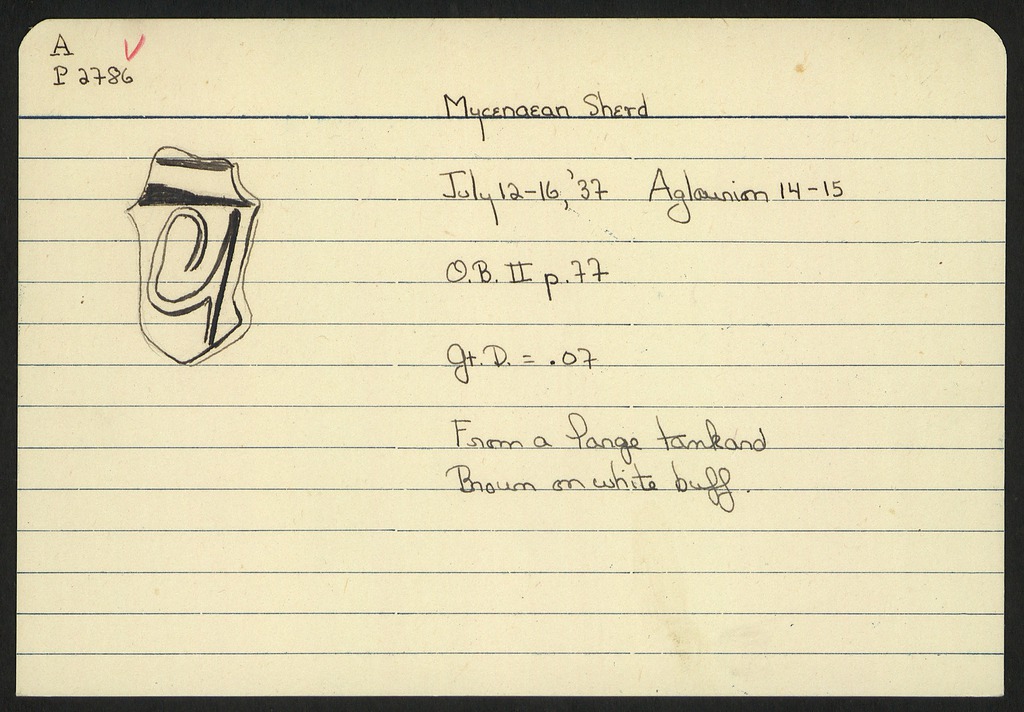 A
P 2786
Mycenaean Sherd
July 12-16, '37 Aglaurion 14-15
O.B. II p. 77
Gt. D. = .07
From a large tankard
Brown on white buff.